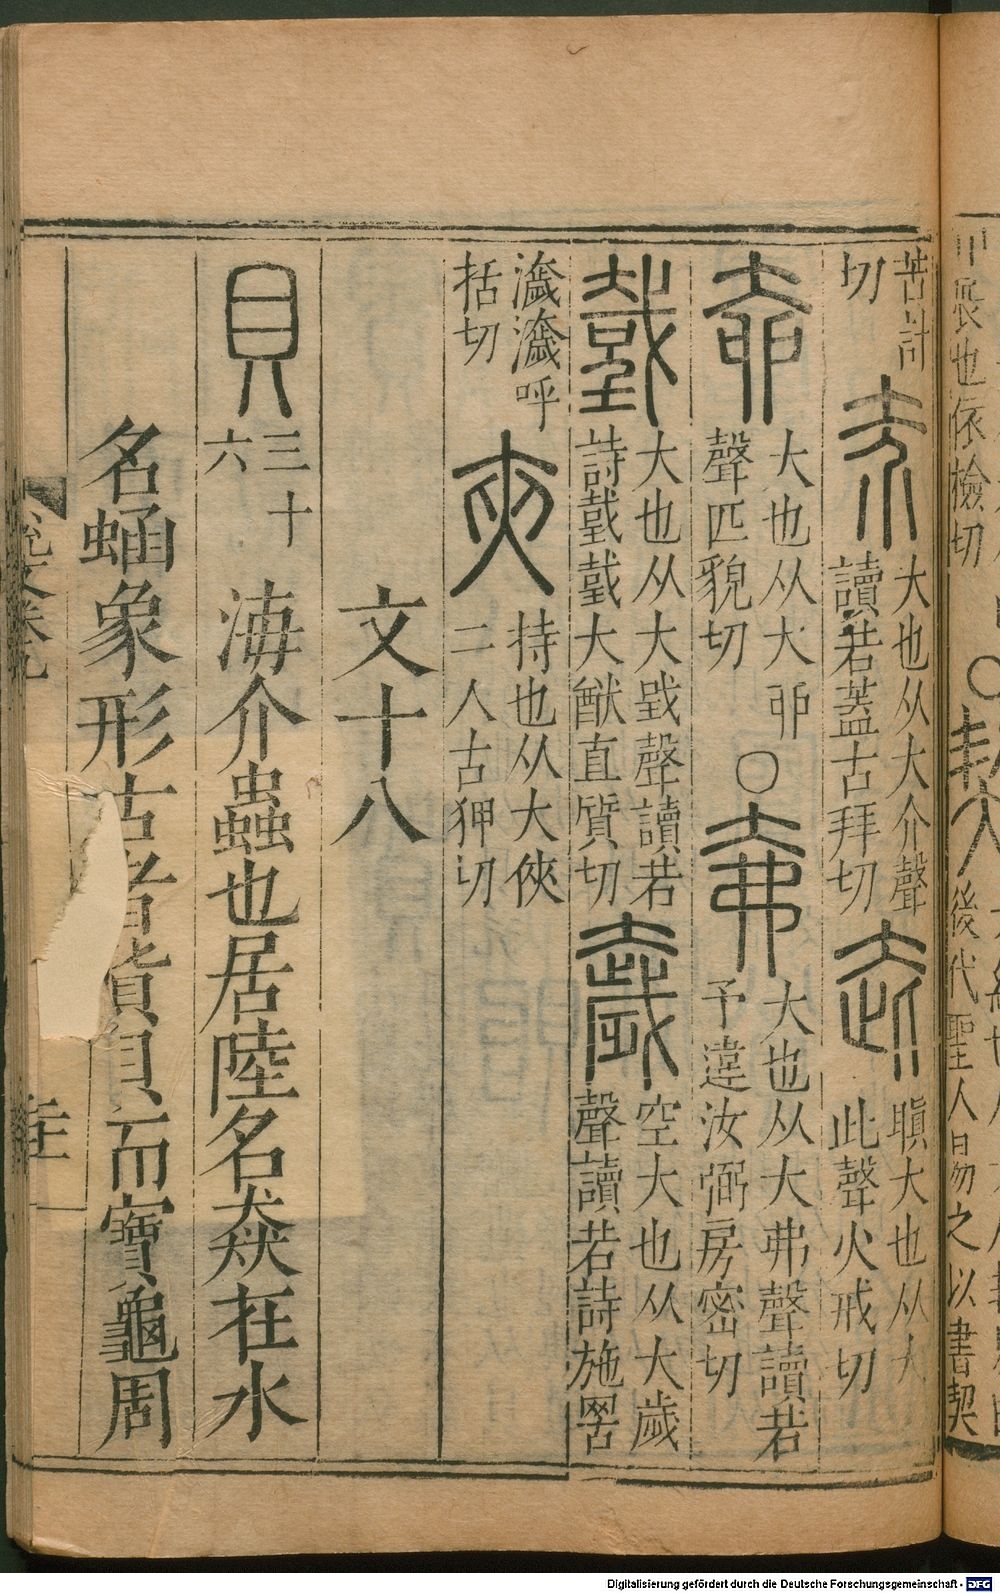 苦計切 夰 大也从大介聲讀若蓋古拜切 㚖 瞋大也从大此聲火戒切
奅 大也从大丣聲匹貌切〇㚕 大也从大弗聲讀若予違汝弼房密切
𢧜 大也从大𢧄聲讀若詩𢧜𢧜大猷直質切 奯 空大也从大歲聲讀若詩施罛
濊濊呼括切 夾 持也从大俠二人古狎切
文十八
貝 三十六 海介蟲也居陸名猋在水
名蜬象形古者貨貝而寶龜周
說文卷九
後代聖人易之以書契
Digitalisierung gefördert durch die Deutsche Forschungsgemeinschaft - DFG